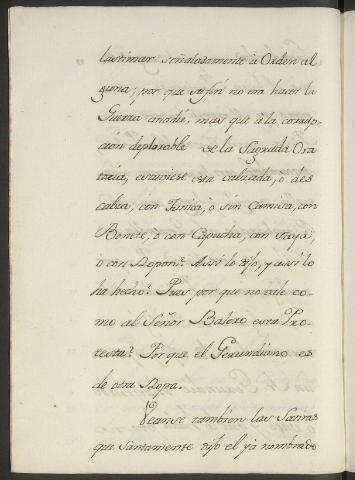 lastimar señaladamente à Orden al
guna; por que su fin no era hacer la
Guerra anadie, mas que à la corrup-
cion deplorable de la Sagrada Ora
toria, estuviese esta calzada, ò des
calza, con Tunica, ò sin Camisa, con
Bonete, ò con Capucha, con Saya,
ò con Ropon? Assi lo dijo, y assi lo
ha hecho? Pues por que no vale co-
mo al Señor Balero esta Pro-
testa? Por que el Gerundismo es
de otra Ropa.
Veanse tambien las Satiras
que Santamente dijo el yà nombrado